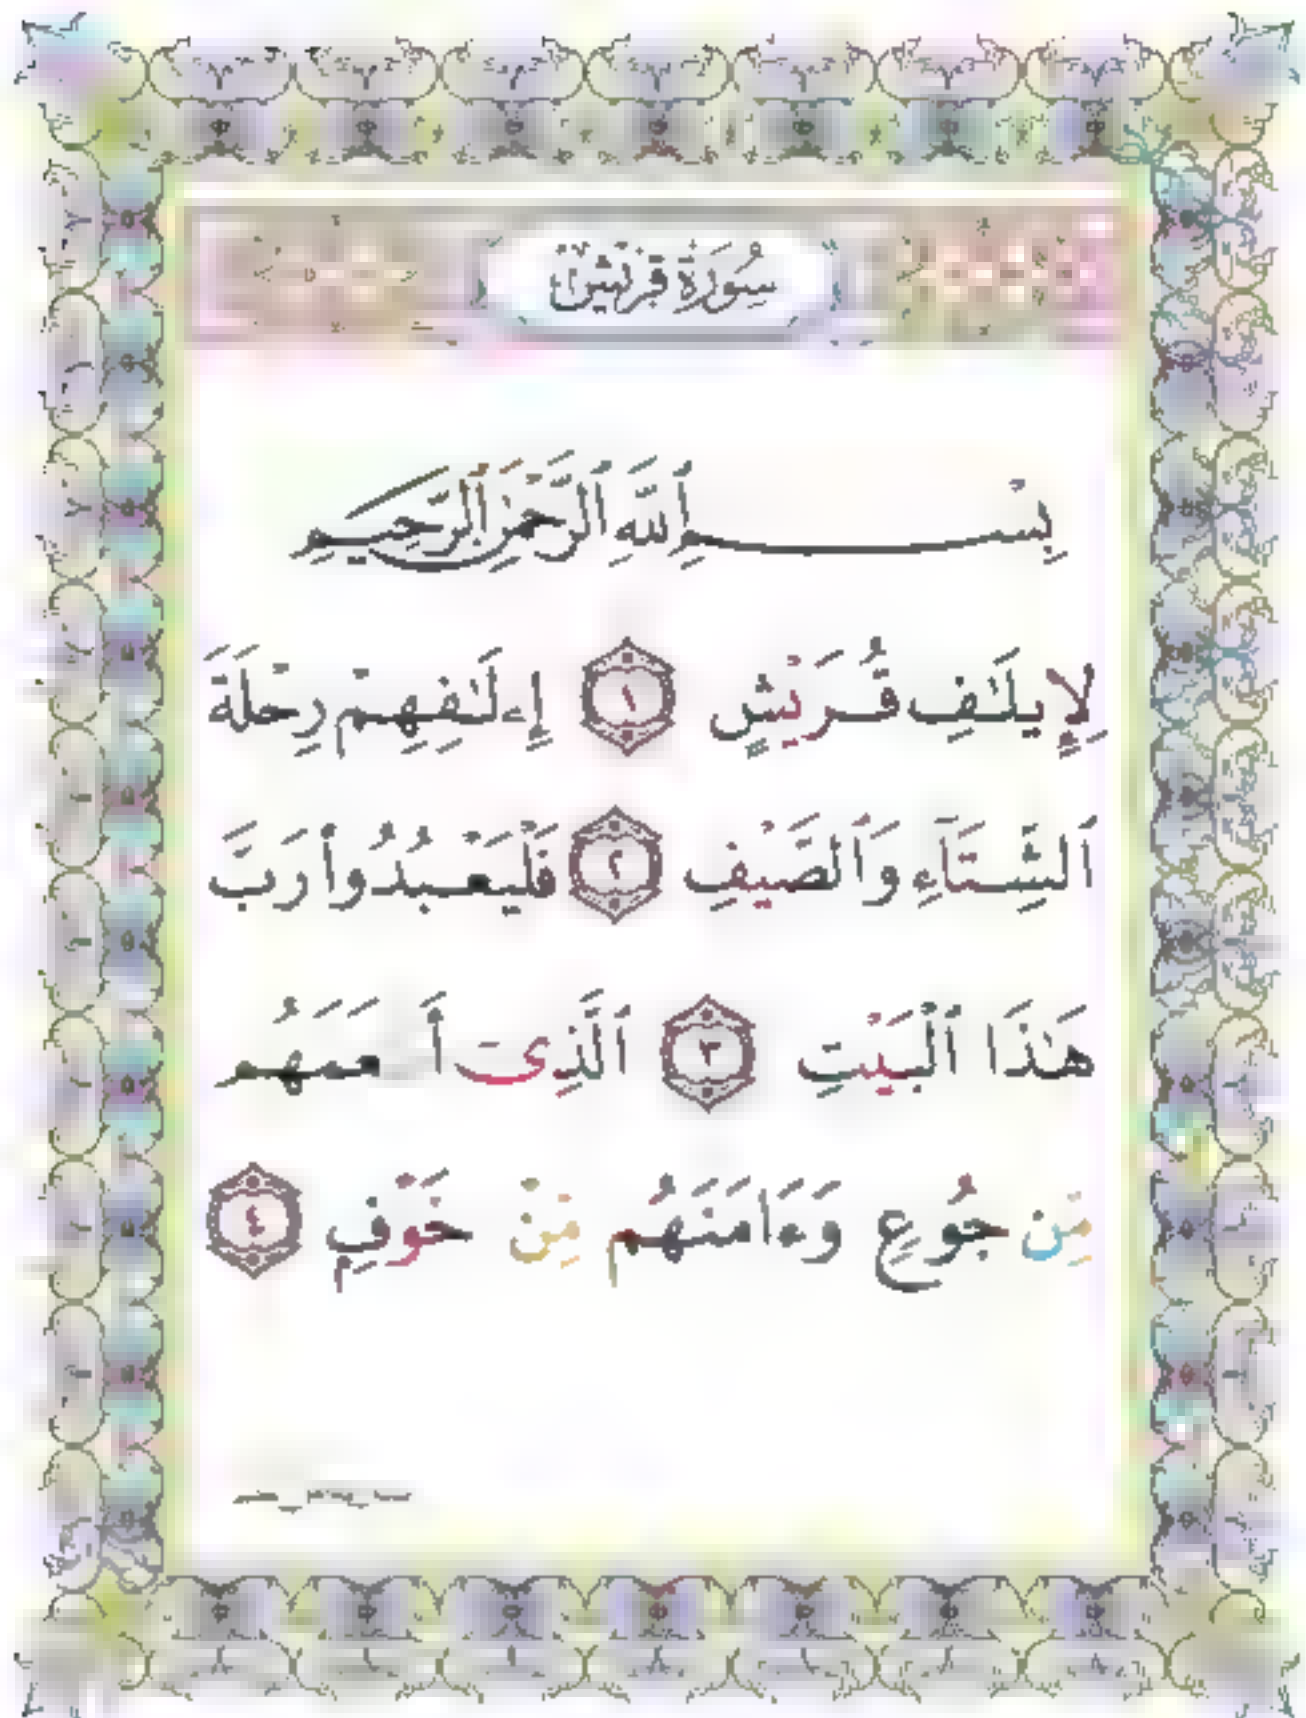 سُورَةُ قُرَيْشٍ
بِسْمِ ٱللَّهِ ٱلرَّحْمَٰنِ ٱلرَّحِيمِ
لِإِيلَٰفِ قُرَيْشٍ ١ إِۦلَٰفِهِمْ رِحْلَةَ
ٱلشِّتَآءِ وَٱلصَّيْفِ ٢ فَلْيَعْبُدُوا۟ رَبَّ
هَٰذَا ٱلْبَيْتِ ٣ ٱلَّذِىٓ
مِّن جُوعٍ وَءَامَنَهُم مِّنْ خَوْفٍۭ ٤